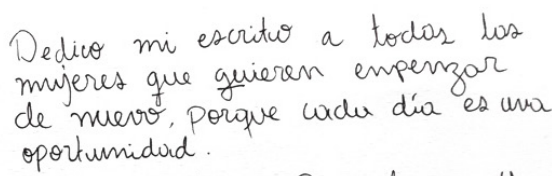 Dedico mi escrito a todas las
mujeres que quieren empenzar
de nuevo, porque cada día es una
oportunidad.